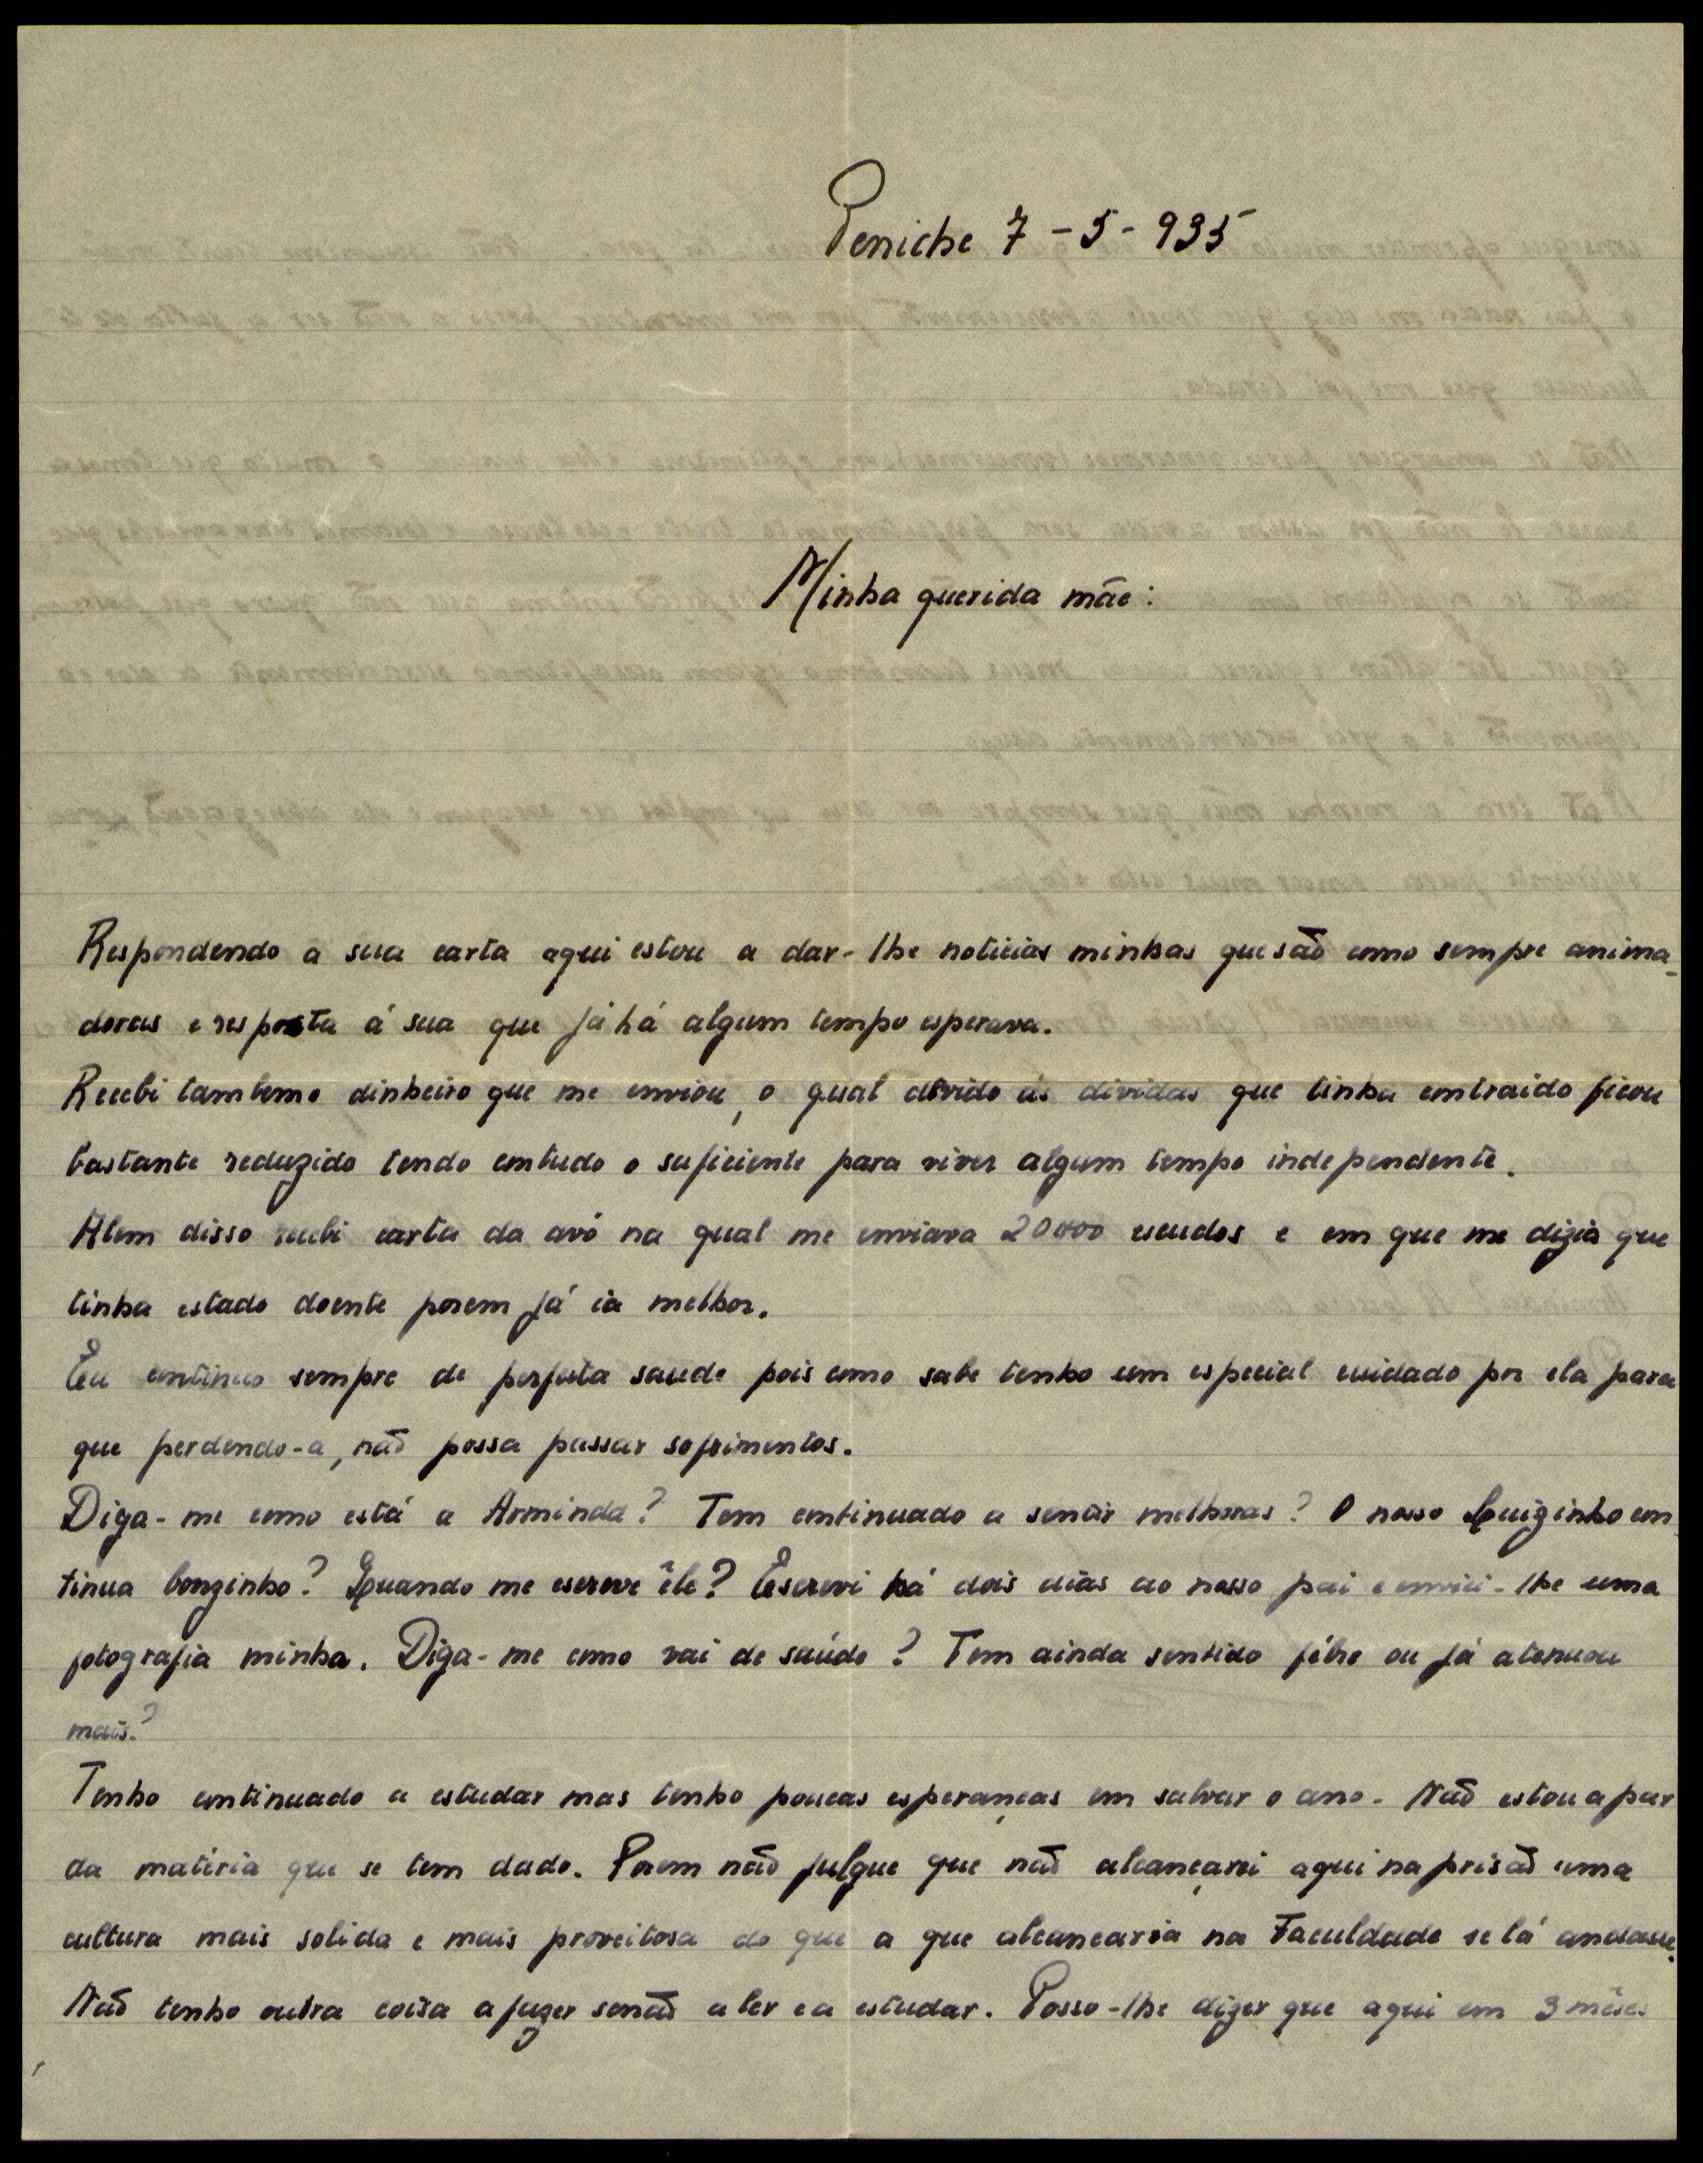 Peniche 7-5-935
Minha querida mãe:
Respondendo a sua carta aqui estou a dar-lhe noticias minhas que são como sempre anima-
doras e resposta á sua que já há algum tempo esperava.
Recebi tambem o dinheiro que me enviou, o qual devido ás dividas que tinha contraido ficou
bastante reduzido tendo contudo o suficiente para viver algum tempo independente.
Alem disso recebi carta da avó na qual me enviava 20$00 escudos e em que me dizia que
tinha estado doente porem já ia melhor.
Eu continuo sempre de perfeita saude pois como sabe tenho um especial cuidado por ela para
que perdendo-a, não possa passar sofrimentos.
Diga-me como está a Arminda? Tem continuado a sentir melhoras? O nosso Luizinho con
tinua bonzinho? Quando me escreve êle? Escrevi há dois dias ao nosso pai e enviei-lhe uma
fotografia minha. Diga-me como vai de saúde? Tem ainda sentido fébre ou já atenuou
mais?
Tenho continuado a estudar mas tenho poucas esperanças em salvar o ano. Não estou a par
da matéria que se tem dado. Porem não julgue que não alcançarei aqui na prisão uma
cultura mais solida e mais proveitosa do que a que alcancaria na Faculdade se lá andasse.
Não tenho outra coisa a fazer senão a ler e a estudar. Posso-lhe dizer que aqui em 3 mêses